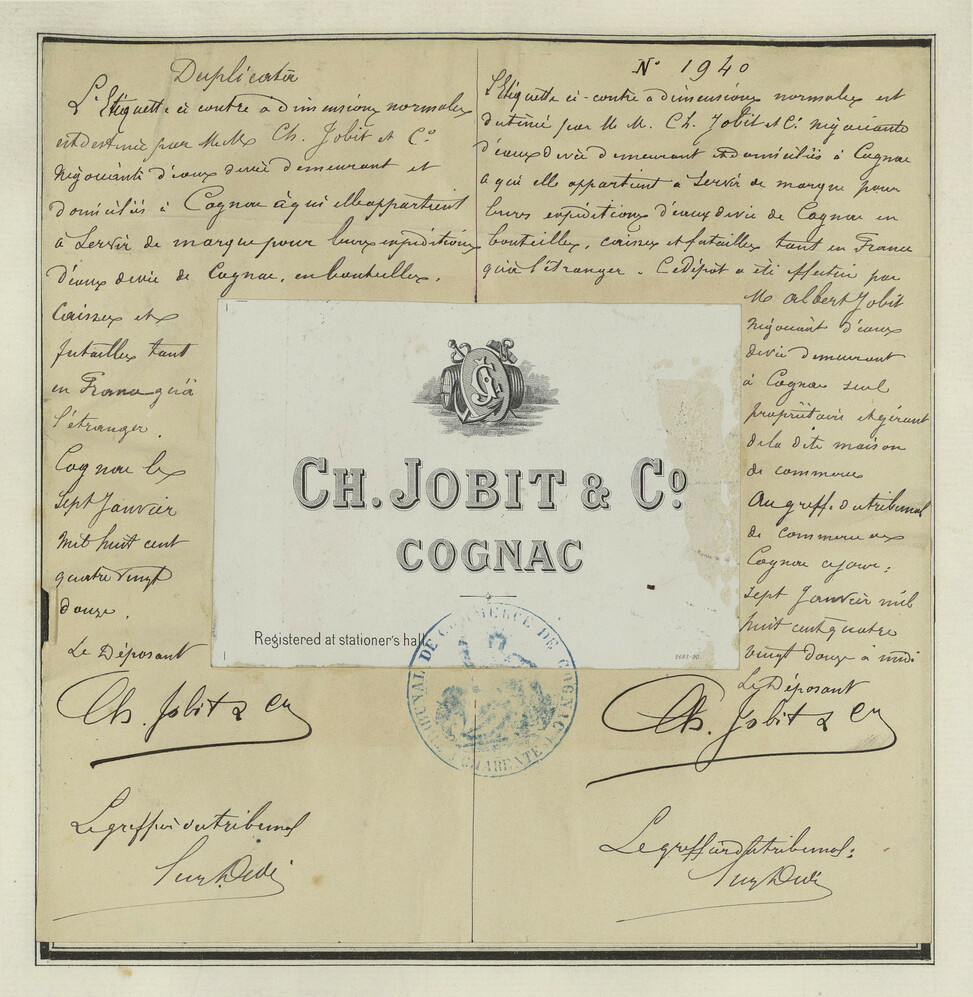 Duplicata
L'Etiquette ci contre à dimensions normales
est destinée par M M Ch. Jobit et Co
négociants d'eaux de vie demeurant et
domiciliés à Cognac à qui elle appartient
à servir de marque pour leurs expéditions
d'eaux de vie de Cognac, en bouteilles,
Caisses et
futailles tant
en France qu'à
l'étranger.
Cognac le
sept Janvier
mil huit cent
quatre vingt
douze.
Le Déposant
Ch. Jobit & Co
Le greffier du tribunal
No 1940
L'Etiquette ci-contre à dimensions normales est
destinée par M M. Ch. Jobit et Co. négociants
d'eaux de vie demeurant et domiciliés à Cognac
à qui elle appartient à servir de marque pour
leurs expéditions d'eaux de vie de Cognac en
bouteilles, caisses et futailles tant en France
qu'à l'étranger. Ce dépôt a été effectué par
M Albert Jobit
négociant d'eaux
de vie demeurant
à Cognac seul
propriétaire et gérant
de la dite maison
de commerce
Au greffe du tribunal
de commerce de
Cognac ce jour,
sept Janvier mil
huit cent quatre
vingt douze à midi
Le Déposant
Ch. Jobit & Co
Le greffier du tribunal
CH. JOBIT & Co
COGNAC
Registered at stationer's hall
TRIBUNAL DE COMMERCE DE COGNAC
CHARENTE